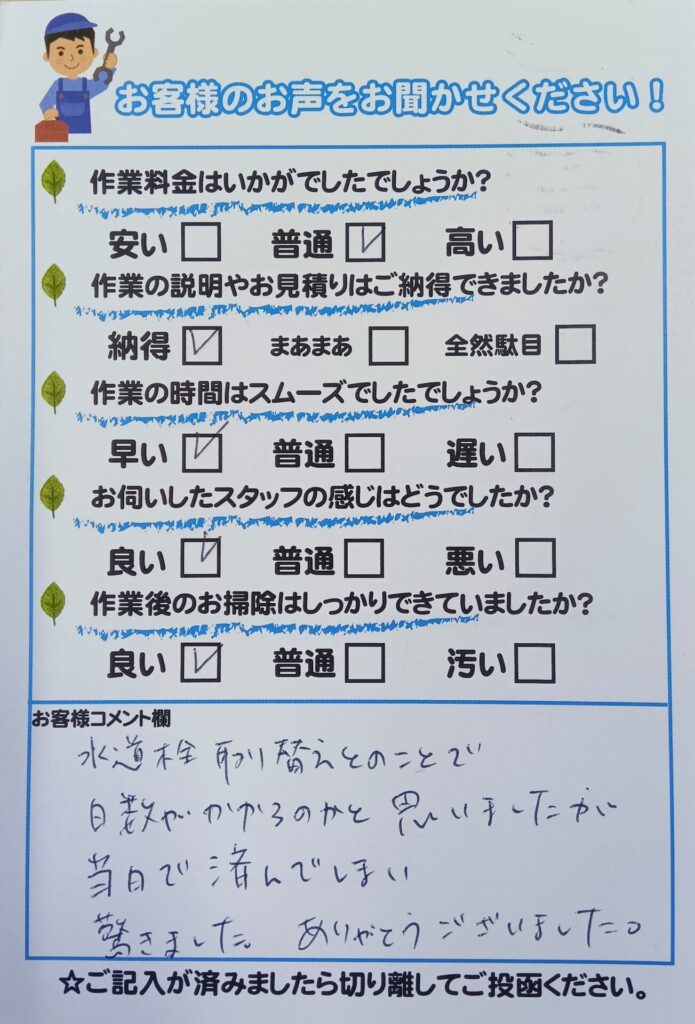 お客様のお声をお聞かせください！
作業料金はいかがでしたでしょうか?
安い 普通 高い
作業の説明やお見積りはご納得できましたか?
納得 まあまあ 全然駄目
作業の時間はスムーズでしたでしょうか?
早い 普通 遅い
お伺いしたスタッフの感じはどうでしたか?
良い 普通 悪い
作業後のお掃除はしっかりできていましたか?
良い 普通 汚い
お客様コメント欄
水道栓取り替えとのことで
日数がかかるのかと思いましたが
当日で済んでしまい
驚きました。ありがとうございました。
☆ご記入が済みましたら切り離してご投函ください。